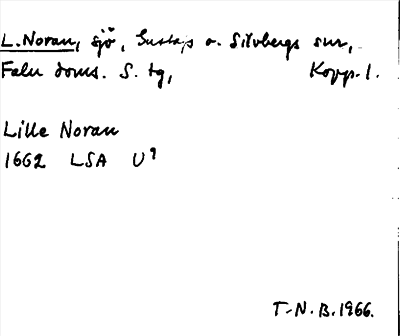 L. Noran, sjö, Gustafs o. Silvbergs snr,
Falu doms. S. tg, Kopp. l.
Lille Noran
1662 LSA U9
T.N.B. 1966.